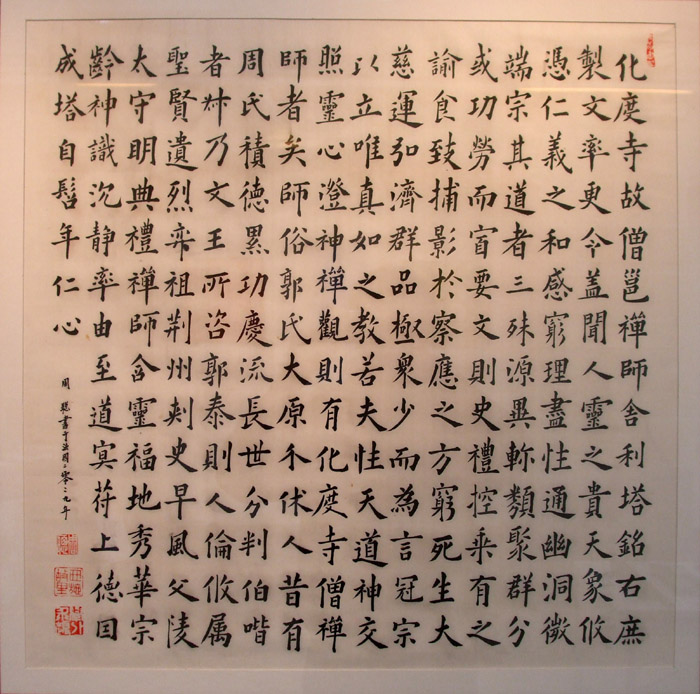 化度寺故僧邕禪師舍利塔銘右庶
製文率更令蓋聞人靈之貴天象攸
憑仁義之和感窮理盡性通幽洞微
端宗其道者三殊源異軫類聚群分
或功勞而寡要文則史禮控乘有之
諭食致捕影於察應之方窮死生大
慈運弘濟群品極衆少而為言冠宗
以立唯真如之教若夫性天道神交
照靈心澄神禪觀則有化度寺僧禪
師者矣師俗郭氏大原介休人昔有
周氏積德累功慶流長世分判伯喈
者艸乃文王所咨郭泰則人倫攸属
聖賢遺烈奕祖荆州刺史早風父陵
太守明典禮禪師含靈福地秀華宗
齡神識沉静率由至道冥符上德因
成塔自髫年仁心
周聪書于法國二零〻九年